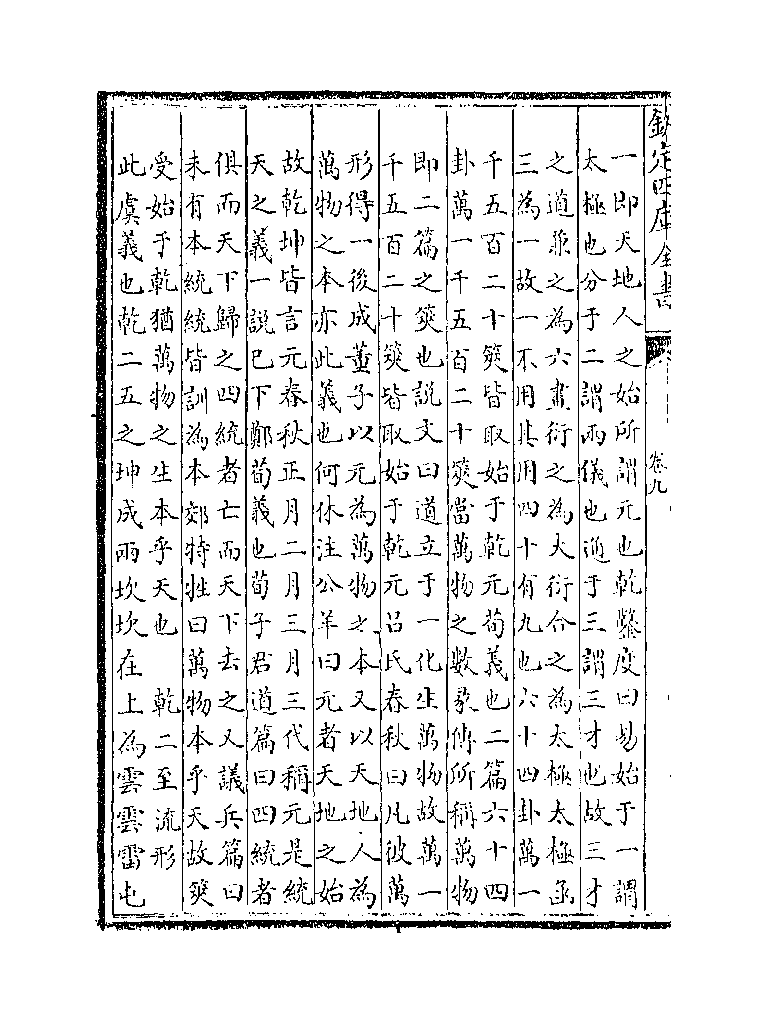 欽定四庫全書
卷九
一即天地人之始所謂元也乾鑿度曰易始于一謂
太極也分于二謂兩儀也通于三謂三才也故三才
之道兼之為六畫衍之為大衍合之為太極太極函
三為一故一不用其用四十有九也六十四卦萬一
千五百二十筴皆取始于乾元荀義也二篇六十四
卦萬一千五百二十筴當萬物之數彖傳所稱萬物
即二篇之筴也說文曰道立于一化生萬物故萬一
千五百二十筴皆取始于乾元呂氏春秋曰凡彼萬
形得一後成董子以元為萬物之本又以天地人為
萬物之本亦此義也何休注公羊曰元者天地之始
故乾坤皆言元春秋正月二月三月三代稱元是統
天之義一説已下鄭荀義也荀子君道篇曰四統者
俱而天下歸之四統者亡而天下去之又議兵篇曰
未有本統統皆訓為本郊特牲曰萬物本乎天故筴
受始于乾猶萬物之生本乎天也　乾二至流形
此虞義也乾二五之坤成兩坎坎在上為雲雲雷屯